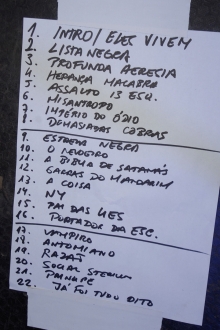 1. INTRO/ ELES VIVEM
2. LISTA NEGRA
3. PROFUNDA HERESIA
4. HERANÇA MACABRA
5. ASSALTO 13 ESQ.
6. MISANTROPO
7. IMPÉRIO DO ÓDIO
8. DEMASIADAS COBRAS
9. ESTRELA NEGRA
10. O
11. A BÍBLIA DE SATANÁS
12. GARRAS DO MANDARIM
13. A COISA
14. NY
15. PAI DAS
16. PORTADOR DA ESC.
17. VAMPIRO
18.
19.
20. SOCIAL
21. PRÍNCIPE
22. JÁ FOI TUDO DITO